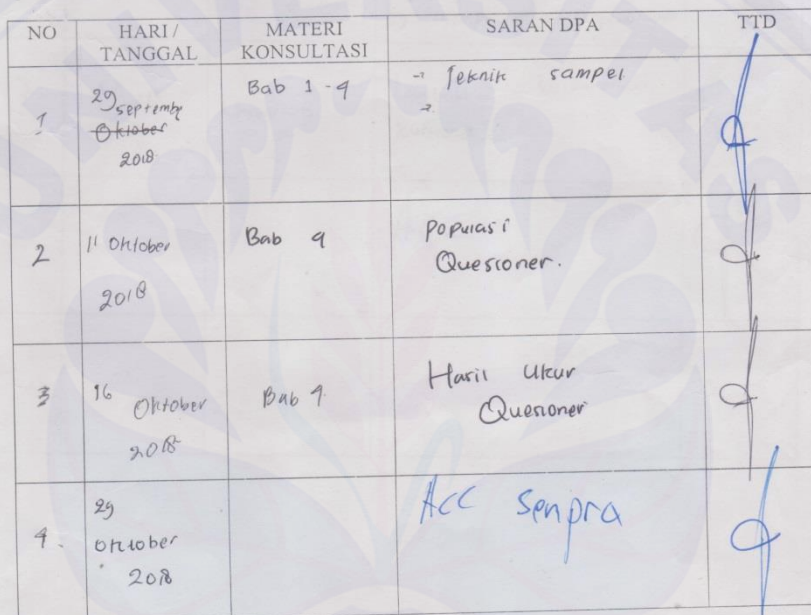 NO HARI / TANGGAL MATERI KONSULTASI SARAN DPA TTD
1 29 septembr Oktober 2018 Bab 1-4 → Teknik sampel →
2 11 Oktober 2018 Bab 4 Populasi Quesioner.
3 16 Oktober 2018 Bab 4 Hasil Ukur Quesioner
4. 29 Oktober 2018 Acc Senpra
UNIVERSITAS